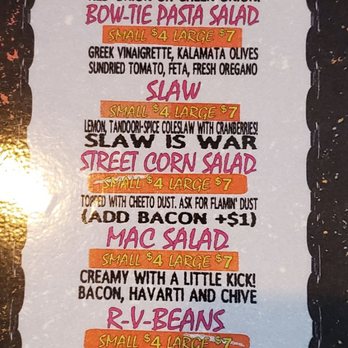 BOW-TIE PASTA SALAD
SMALL $4 LARGE $7
GREEK VINAIGRETTE, KALAMATA OLIVES
SUNDRIED TOMATO, FETA, FRESH OREGANO
SLAW
SMALL $4 LARGE $7
LEMON, TANDOORI-SPICE COLESLAW WITH CRANBERRIES!
SLAW IS WAR
STREET CORN SALAD
SMALL $4 LARGE $7
TOPPED WITH CHEETO DUST. ASK FOR FLAMIN' DUST
(ADD BACON +$1)
MAC SALAD
SMALL $4 LARGE $7
CREAMY WITH A LITTLE KICK!
BACON, HAVARTI AND CHIVE
R-V-BEANS
SMALL $4 LARGE $7